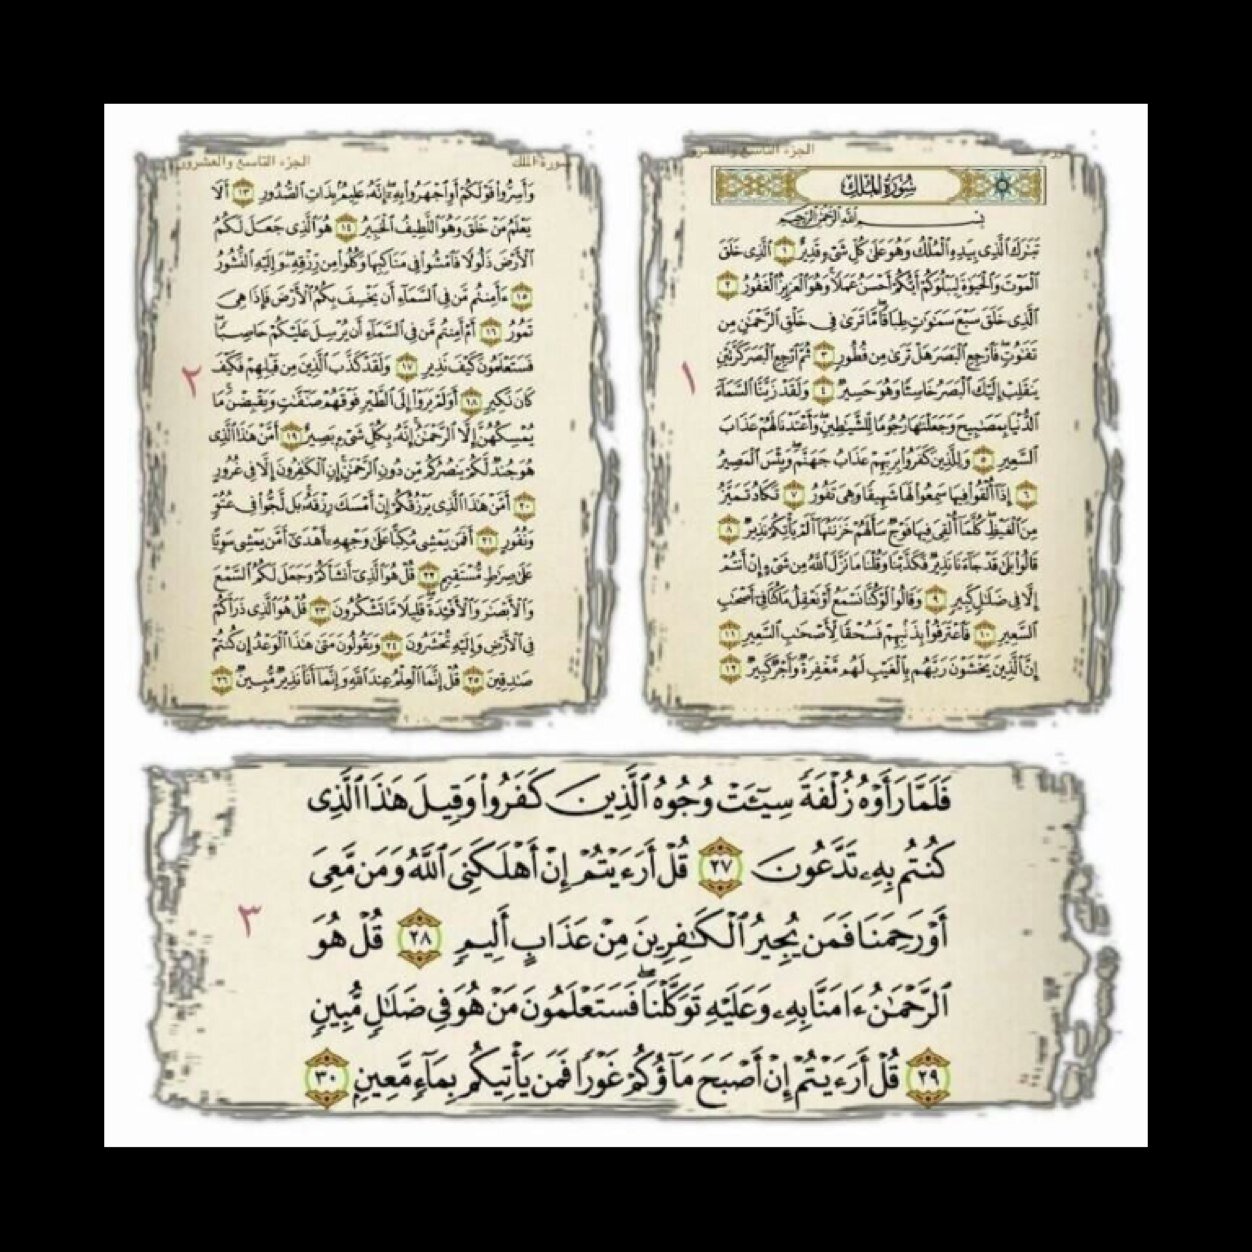 الجزء التاسع والعشرون
سُورَةُ المُلْكِ
بِسْمِ اللَّهِ الرَّحْمَٰنِ الرَّحِيمِ
تَبَٰرَكَ ٱلَّذِى بِيَدِهِ ٱلْمُلْكُ وَهُوَ عَلَىٰ كُلِّ شَىْءٍ قَدِيرٌ ١ ٱلَّذِى خَلَقَ
ٱلْمَوْتَ وَٱلْحَيَوٰةَ لِيَبْلُوَكُمْ أَيُّكُمْ أَحْسَنُ عَمَلًا وَهُوَ ٱلْعَزِيزُ ٱلْغَفُورُ ٢
ٱلَّذِى خَلَقَ سَبْعَ سَمَٰوَٰتٍ طِبَاقًا مَّا تَرَىٰ فِى خَلْقِ ٱلرَّحْمَٰنِ مِن
تَفَٰوُتٍ فَٱرْجِعِ ٱلْبَصَرَ هَلْ تَرَىٰ مِن فُطُورٍ ٣ ثُمَّ ٱرْجِعِ ٱلْبَصَرَ كَرَّتَيْنِ
يَنقَلِبْ إِلَيْكَ ٱلْبَصَرُ خَاسِئًا وَهُوَ حَسِيرٌ ٤ وَلَقَدْ زَيَّنَّا ٱلسَّمَآءَ
ٱلدُّنْيَا بِمَصَٰبِيحَ وَجَعَلْنَٰهَا رُجُومًا لِّلشَّيَٰطِينِ وَأَعْتَدْنَا لَهُمْ عَذَابَ
ٱلسَّعِيرِ ٥ وَلِلَّذِينَ كَفَرُوا۟ بِرَبِّهِمْ عَذَابُ جَهَنَّمَ وَبِئْسَ ٱلْمَصِيرُ
٦ إِذَآ أُلْقُوا۟ فِيهَا سَمِعُوا۟ لَهَا شَهِيقًا وَهِىَ تَفُورُ ٧ تَكَادُ تَمَيَّزُ
مِنَ ٱلْغَيْظِ كُلَّمَآ أُلْقِىَ فِيهَا فَوْجٌ سَأَلَهُمْ خَزَنَتُهَآ أَلَمْ يَأْتِكُمْ نَذِيرٌ ٨
قَالُوا۟ بَلَىٰ قَدْ جَآءَنَا نَذِيرٌ فَكَذَّبْنَا وَقُلْنَا مَا نَزَّلَ ٱللَّهُ مِن شَىْءٍ إِنْ أَنتُمْ
إِلَّا فِى ضَلَٰلٍ كَبِيرٍ ٩ وَقَالُوا۟ لَوْ كُنَّا نَسْمَعُ أَوْ نَعْقِلُ مَا كُنَّا فِىٓ أَصْحَٰبِ
ٱلسَّعِيرِ ١٠ فَٱعْتَرَفُوا۟ بِذَنۢبِهِمْ فَسُحْقًا لِّأَصْحَٰبِ ٱلسَّعِيرِ ١١
إِنَّ ٱلَّذِينَ يَخْشَوْنَ رَبَّهُم بِٱلْغَيْبِ لَهُم مَّغْفِرَةٌ وَأَجْرٌ كَبِيرٌ ١٢
١
سورة الملك
الجزء التاسع والعشرون
وَأَسِرُّوا۟ قَوْلَكُمْ أَوِ ٱجْهَرُوا۟ بِهِۦٓ إِنَّهُۥ عَلِيمٌۢ بِذَاتِ ٱلصُّدُورِ ١٣ أَلَا
يَعْلَمُ مَنْ خَلَقَ وَهُوَ ٱللَّطِيفُ ٱلْخَبِيرُ ١٤ هُوَ ٱلَّذِى جَعَلَ لَكُمُ
ٱلْأَرْضَ ذَلُولًا فَٱمْشُوا۟ فِى مَنَاكِبِهَا وَكُلُوا۟ مِن رِّزْقِهِۦ وَإِلَيْهِ ٱلنُّشُورُ
١٥ ءَأَمِنتُم مَّن فِى ٱلسَّمَآءِ أَن يَخْسِفَ بِكُمُ ٱلْأَرْضَ فَإِذَا هِىَ
تَمُورُ ١٦ أَمْ أَمِنتُم مَّن فِى ٱلسَّمَآءِ أَن يُرْسِلَ عَلَيْكُمْ حَاصِبًا
فَسَتَعْلَمُونَ كَيْفَ نَذِيرِ ١٧ وَلَقَدْ كَذَّبَ ٱلَّذِينَ مِن قَبْلِهِمْ فَكَيْفَ
كَانَ نَكِيرِ ١٨ أَوَلَمْ يَرَوْا۟ إِلَى ٱلطَّيْرِ فَوْقَهُمْ صَٰٓفَّٰتٍ وَيَقْبِضْنَ مَا
يُمْسِكُهُنَّ إِلَّا ٱلرَّحْمَٰنُ إِنَّهُۥ بِكُلِّ شَىْءٍۭ بَصِيرٌ ١٩ أَمَّنْ هَٰذَا ٱلَّذِى
هُوَ جُندٌ لَّكُمْ يَنصُرُكُم مِّن دُونِ ٱلرَّحْمَٰنِ إِنِ ٱلْكَٰفِرُونَ إِلَّا فِى غُرُورٍ
٢٠ أَمَّنْ هَٰذَا ٱلَّذِى يَرْزُقُكُمْ إِنْ أَمْسَكَ رِزْقَهُۥ بَل لَّجُّوا۟ فِى عُتُوٍّ
وَنُفُورٍ ٢١ أَفَمَن يَمْشِى مُكِبًّا عَلَىٰ وَجْهِهِۦٓ أَهْدَىٰٓ أَمَّن يَمْشِى سَوِيًّا
عَلَىٰ صِرَٰطٍ مُّسْتَقِيمٍ ٢٢ قُلْ هُوَ ٱلَّذِىٓ أَنشَأَكُمْ وَجَعَلَ لَكُمُ ٱلسَّمْعَ
وَٱلْأَبْصَٰرَ وَٱلْأَفْـِٔدَةَ قَلِيلًا مَّا تَشْكُرُونَ ٢٣ قُلْ هُوَ ٱلَّذِى ذَرَأَكُمْ
فِى ٱلْأَرْضِ وَإِلَيْهِ تُحْشَرُونَ ٢٤ وَيَقُولُونَ مَتَىٰ هَٰذَا ٱلْوَعْدُ إِن كُنتُمْ
صَٰدِقِينَ ٢٥ قُلْ إِنَّمَا ٱلْعِلْمُ عِندَ ٱللَّهِ وَإِنَّمَآ أَنَا۠ نَذِيرٌ مُّبِينٌ ٢٦
٢
فَلَمَّا رَأَوْهُ زُلْفَةً سِيٓـَٔتْ وُجُوهُ ٱلَّذِينَ كَفَرُوا۟ وَقِيلَ هَٰذَا ٱلَّذِى
كُنتُم بِهِۦ تَدَّعُونَ ٢٧ قُلْ أَرَءَيْتُمْ إِنْ أَهْلَكَنِىَ ٱللَّهُ وَمَن مَّعِىَ
أَوْ رَحِمَنَا فَمَن يُجِيرُ ٱلْكَٰفِرِينَ مِنْ عَذَابٍ أَلِيمٍ ٢٨ قُلْ هُوَ
ٱلرَّحْمَٰنُ ءَامَنَّا بِهِۦ وَعَلَيْهِ تَوَكَّلْنَا فَسَتَعْلَمُونَ مَنْ هُوَ فِى ضَلَٰلٍ مُّبِينٍ
٢٩ قُلْ أَرَءَيْتُمْ إِنْ أَصْبَحَ مَآؤُكُمْ غَوْرًا فَمَن يَأْتِيكُم بِمَآءٍ مَّعِينٍۭ ٣٠
٣